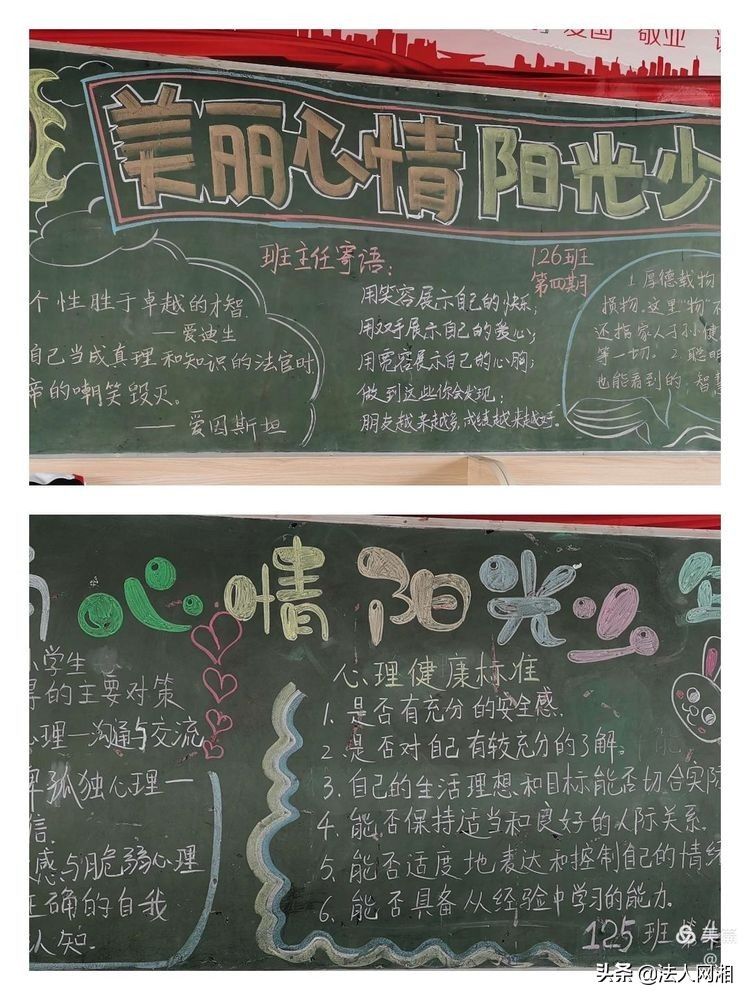 爱国 敬业
美丽心情 阳光少
班主任寄语：
126班
第四期
个性胜于卓越的才智
——爱迪生
自己当成真理和知识的法官时
帝的嘲笑毁灭。
——爱因斯坦
用笑容展示自己的快乐；
用双手展示自己的爱心；
用宽容展示自己的心胸；
做到这些你会发现：
朋友越来越多，成绩越来越好。
1.厚德载物
损物。这里“物”不
还指家人子孙健
等一切。2.聪明
也能看到的，智慧
心情阳光少年
小学生
的主要对策
心理—沟通与交流
孤独心理—
信
感与脆弱心理
正确的自我
认知.
心理健康标准
1.是否有充分的安全感.
2.是否对自己有较充分的了解。
3.自己的生活理想和目标能否切合实际
4.能否保持适当和良好的人际关系.
5.能否适度地表达和控制自己的情绪
6.能否具备从经验中学习的能力.
125班
美篇
头条 @法人网湘